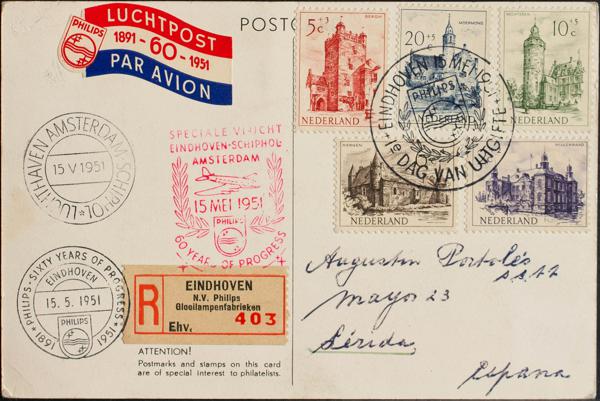 LUCHTPOST
PHILIPS
1891-60-1951
PAR AVION
5+3 c
BERGH
NEDERLAND
20+5 c
HOENSBROEK
NEDERLAND
10+5 c
HERNEN
NEDERLAND
NEDERLAND
NEDERLAND
EINDHOVEN 15 MEI 1951
PHILIPS
1e DAG VAN UITGIFTE
LUCHTHAVEN AMSTERDAM-SCHIPHOL
15 V 1951
SPECIALE VLUCHT
EINDHOVEN-SCHIPHOL
AMSTERDAM
15 MEI 1951
PHILIPS
60 YEARS OF PROGRESS
PHILIPS·SIXTY YEARS OF PROGRESS
EINDHOVEN
15.5.1951
PHILIPS
1891 1951
R
EINDHOVEN
N.V. Philips
Gloeilampenfabrieken
Ehv. 403
ATTENTION!
Postmarks and stamps on this card
are of special interest to philatelists.
Augustin Portolés
Mayor 23
Lérida
España